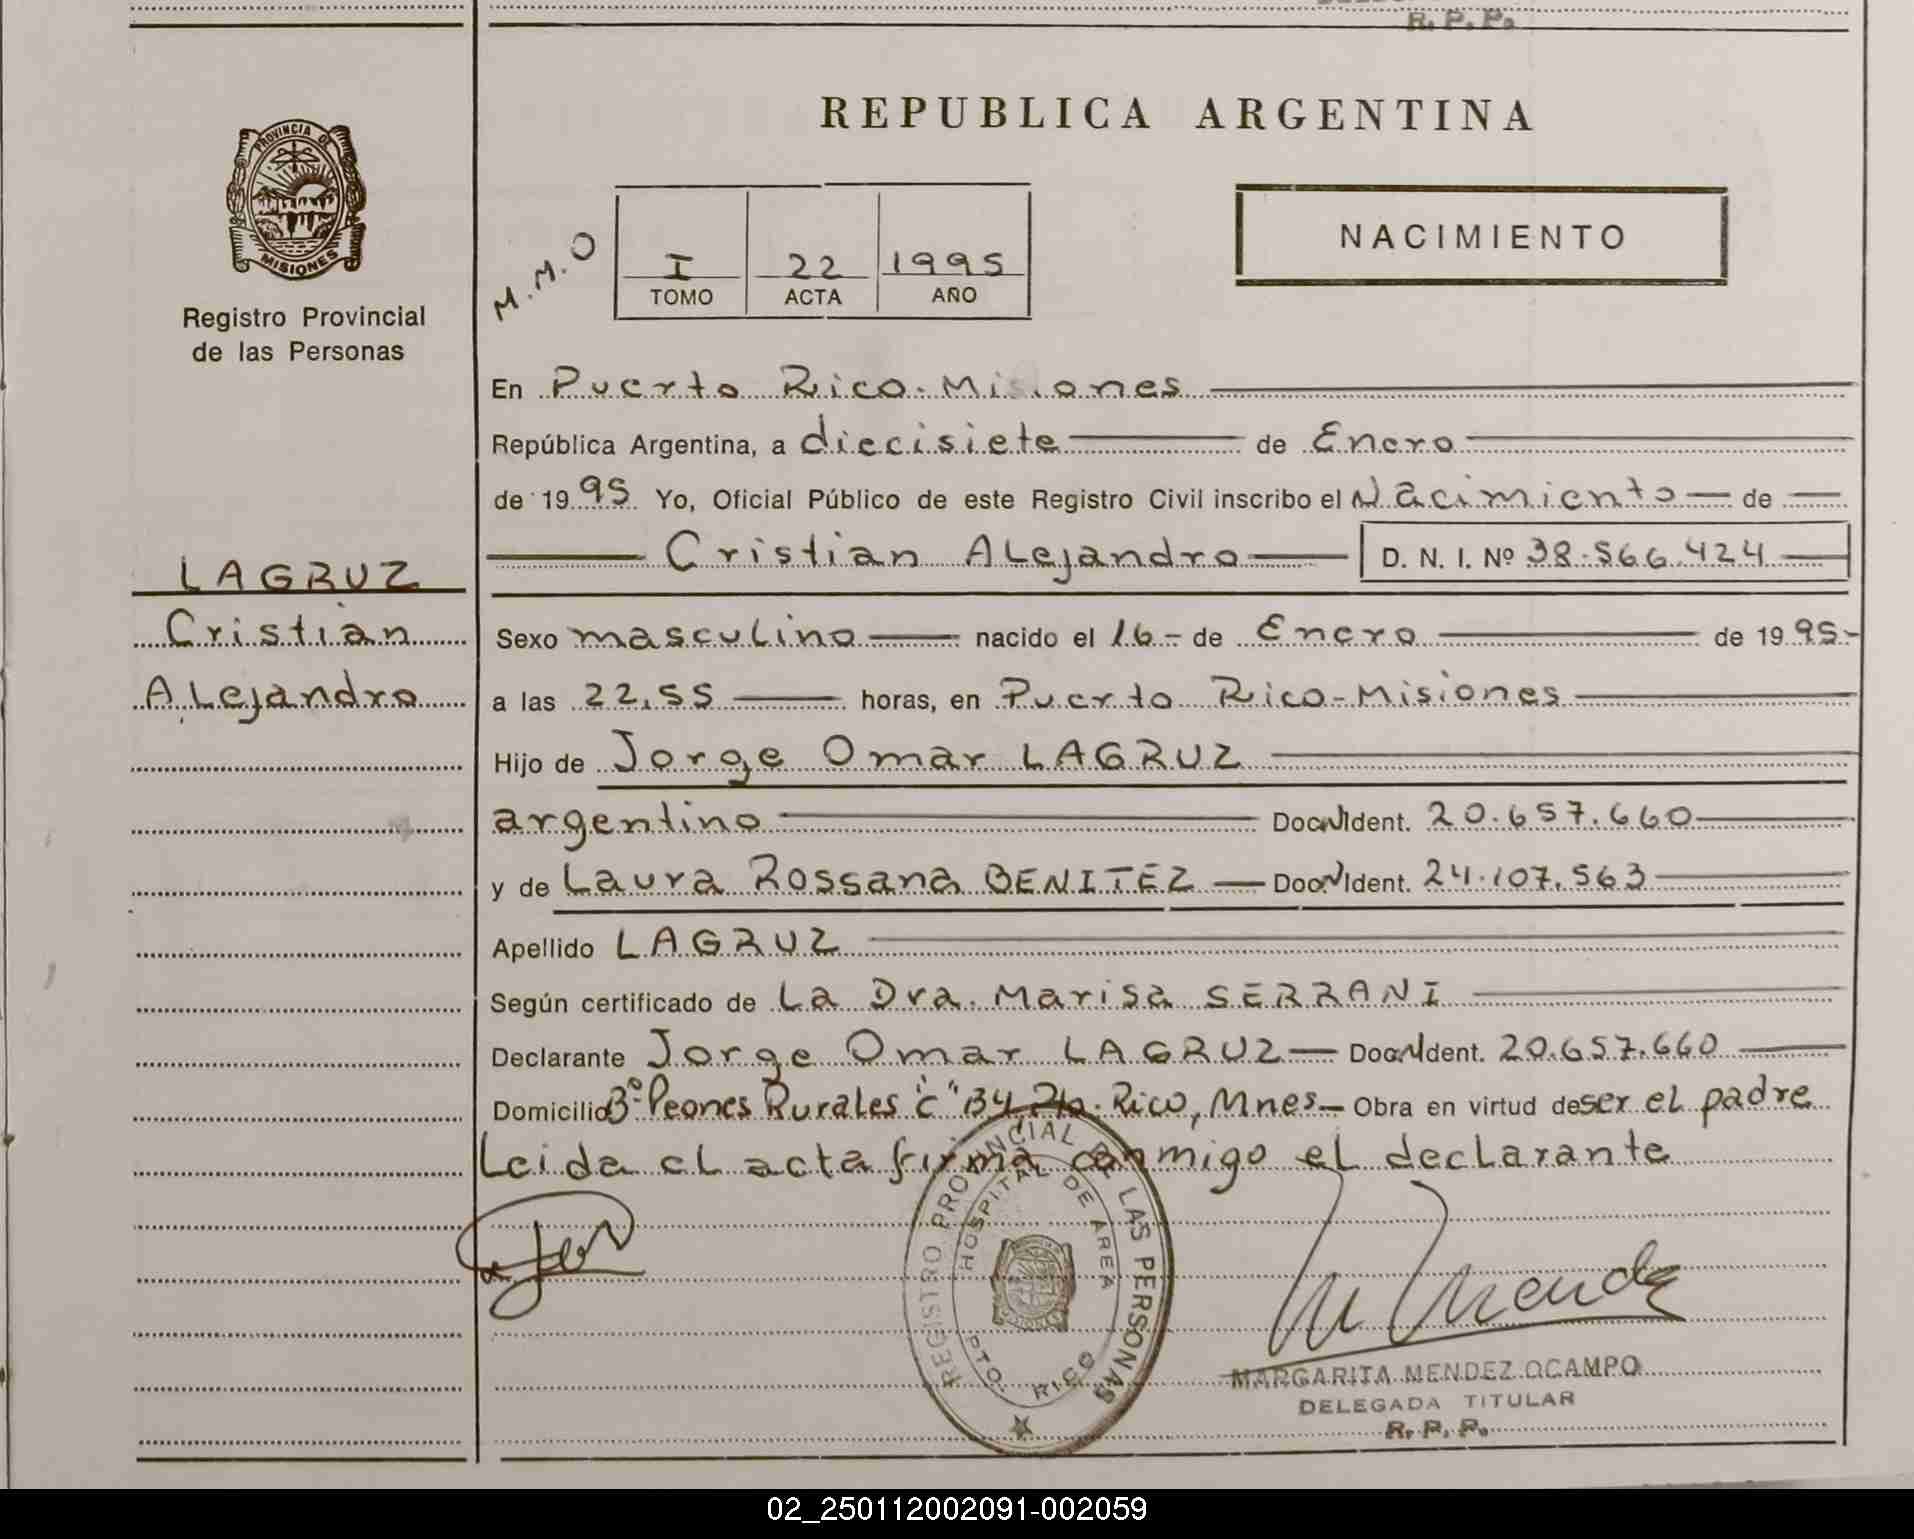 R. P. P.
PROVINCIA DE
MISIONES
Registro Provincial
de las Personas
LAGRUZ
Cristian
Alejandro
REPUBLICA ARGENTINA
M.M.O
I 22 1995
TOMO ACTA AÑO
NACIMIENTO
En Puerto Rico-Misiones
República Argentina, a diecisiete de Enero
de 1995 Yo, Oficial Público de este Registro Civil inscribo el Nacimiento de
Cristian Alejandro D. N. I. Nº 38.566.424
Sexo masculino nacido el 16- de Enero de 1995-
a las 22,55 horas, en Puerto Rico-Misiones
Hijo de Jorge Omar LAGRUZ
argentino Doc. Ident. 20.657.660
y de Laura Rossana BENITEZ Doc. Ident. 24.107.563
Apellido LAGRUZ
Según certificado de La Dra. Marisa SERRANI
Declarante Jorge Omar LAGRUZ Doc. Ident. 20.657.660
Domicilio Bº Peones Rurales "c" B4 Pto. Rico, Mnes- Obra en virtud de ser el padre
Leida el acta firma conmigo el declarante
REGISTRO PROVINCIAL DE LAS PERSONAS
HOSPITAL DE AREA
PTO. RICO
MARGARITA MENDEZ OCAMPO
DELEGADA TITULAR
R. P. P.
02_250112002091-002059